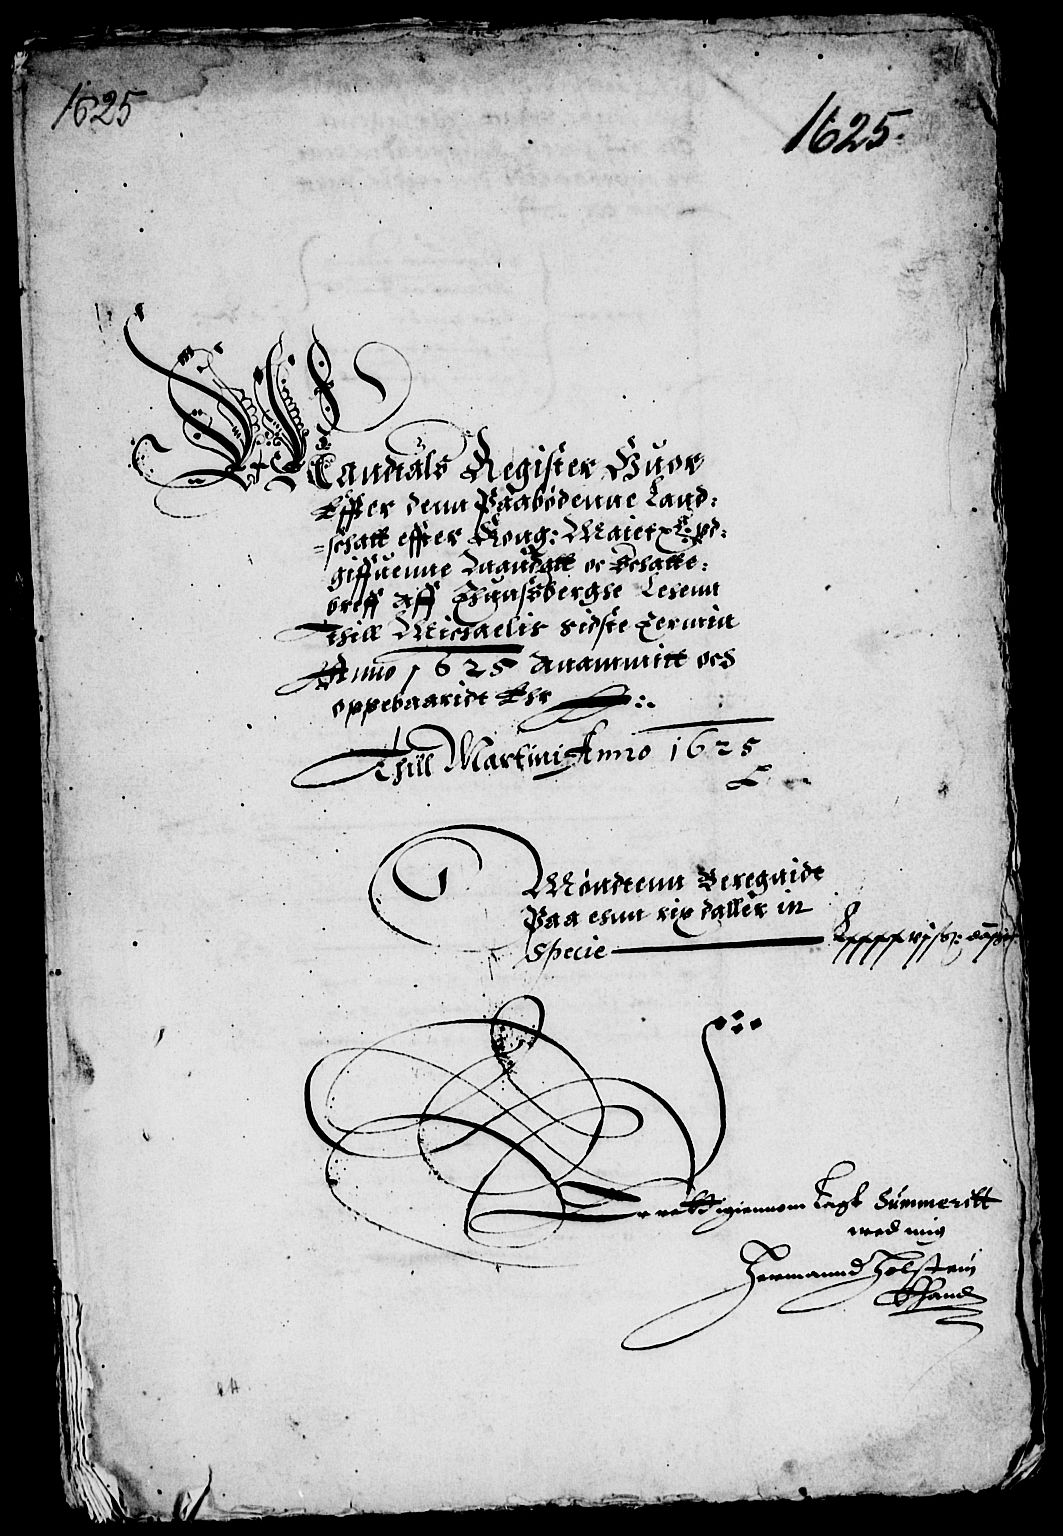 1625
1625.
Mandtals Register Huor
Effter denn Paabödenne Land:
=schatt effter Kong: Maietz: vd=
giffuenne Mandatt oc Schatte:
breff Aff Thunssberghs Lehenn
Thill Michaelis sidste termin
Anno 1625 Anammitt och
oppebaaridt Ehr
Thill Martini Anno 1625
Möndtenn Beregnidt
Paa ehnn rix daller in
Specie
igiennom Lagt Summeritt
med mig
Hermannd Holstein
Ehand